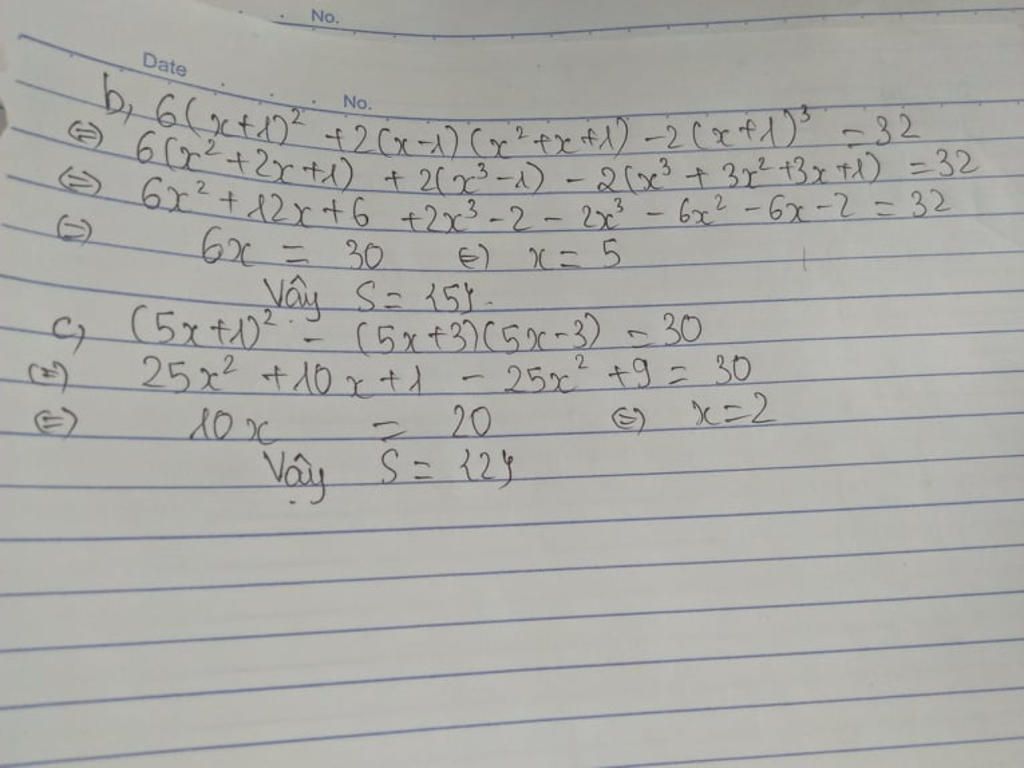 No.
Date
No.
b, 6(x+1)² +2(x-1)(x²+x+1) -2(x+1)³ =32
⇔ 6(x²+2x+1) + 2(x³-1) - 2(x³ + 3x²+3x+1) = 32
⇔ 6x²+12x+6 +2x³-2 - 2x³ - 6x² -6x-2 = 32
⇔ 6x = 30 ⇔ x = 5
Vậy S = {5}.
c, (5x+1)² - (5x+3)(5x-3) = 30
⇔ 25x² +10x+1 - 25x² +9 = 30
⇔ 10x = 20 ⇔ x=2
Vậy S = {2}